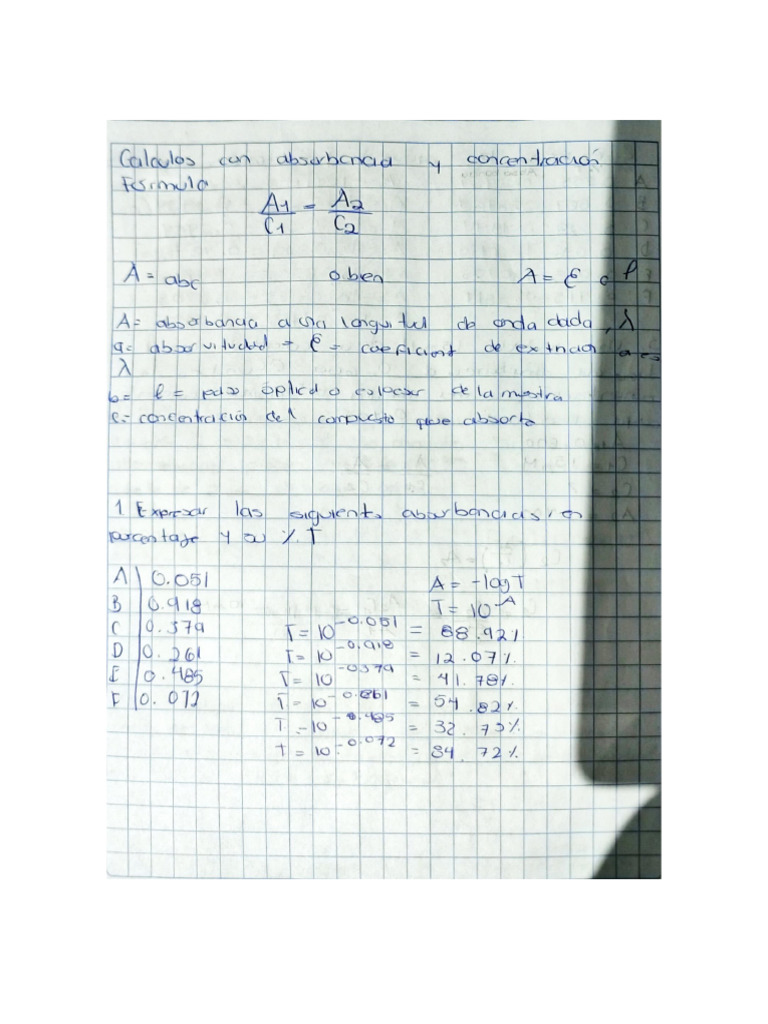 Calculos con absorbancia y concentración
Formula
A1/C1 = A2/C2
A = abc o bien A = Ɛ c l
A= absorbancia a una longitud de onda dada, λ
a= absorvitividad = Ɛ = coeficient de extincion a es
λ
b= l = paso óptico o colocar de la mestra
c= concentración del compuesto que absorbe
1 Expresar las siguients absorbancias, en
porcentaje y a % T
A = -log T
T = 10^-A
A 0.051
B 0.918
C 0.379
D 0.261
E 0.485
F 0.072
T = 10^-0.051 = 88.92%
T = 10^-0.918 = 12.07%
T = 10^-0.379 = 41.78%
T = 10^-0.261 = 54.82%
T = 10^-0.485 = 32.73%
T = 10^-0.072 = 84.72%